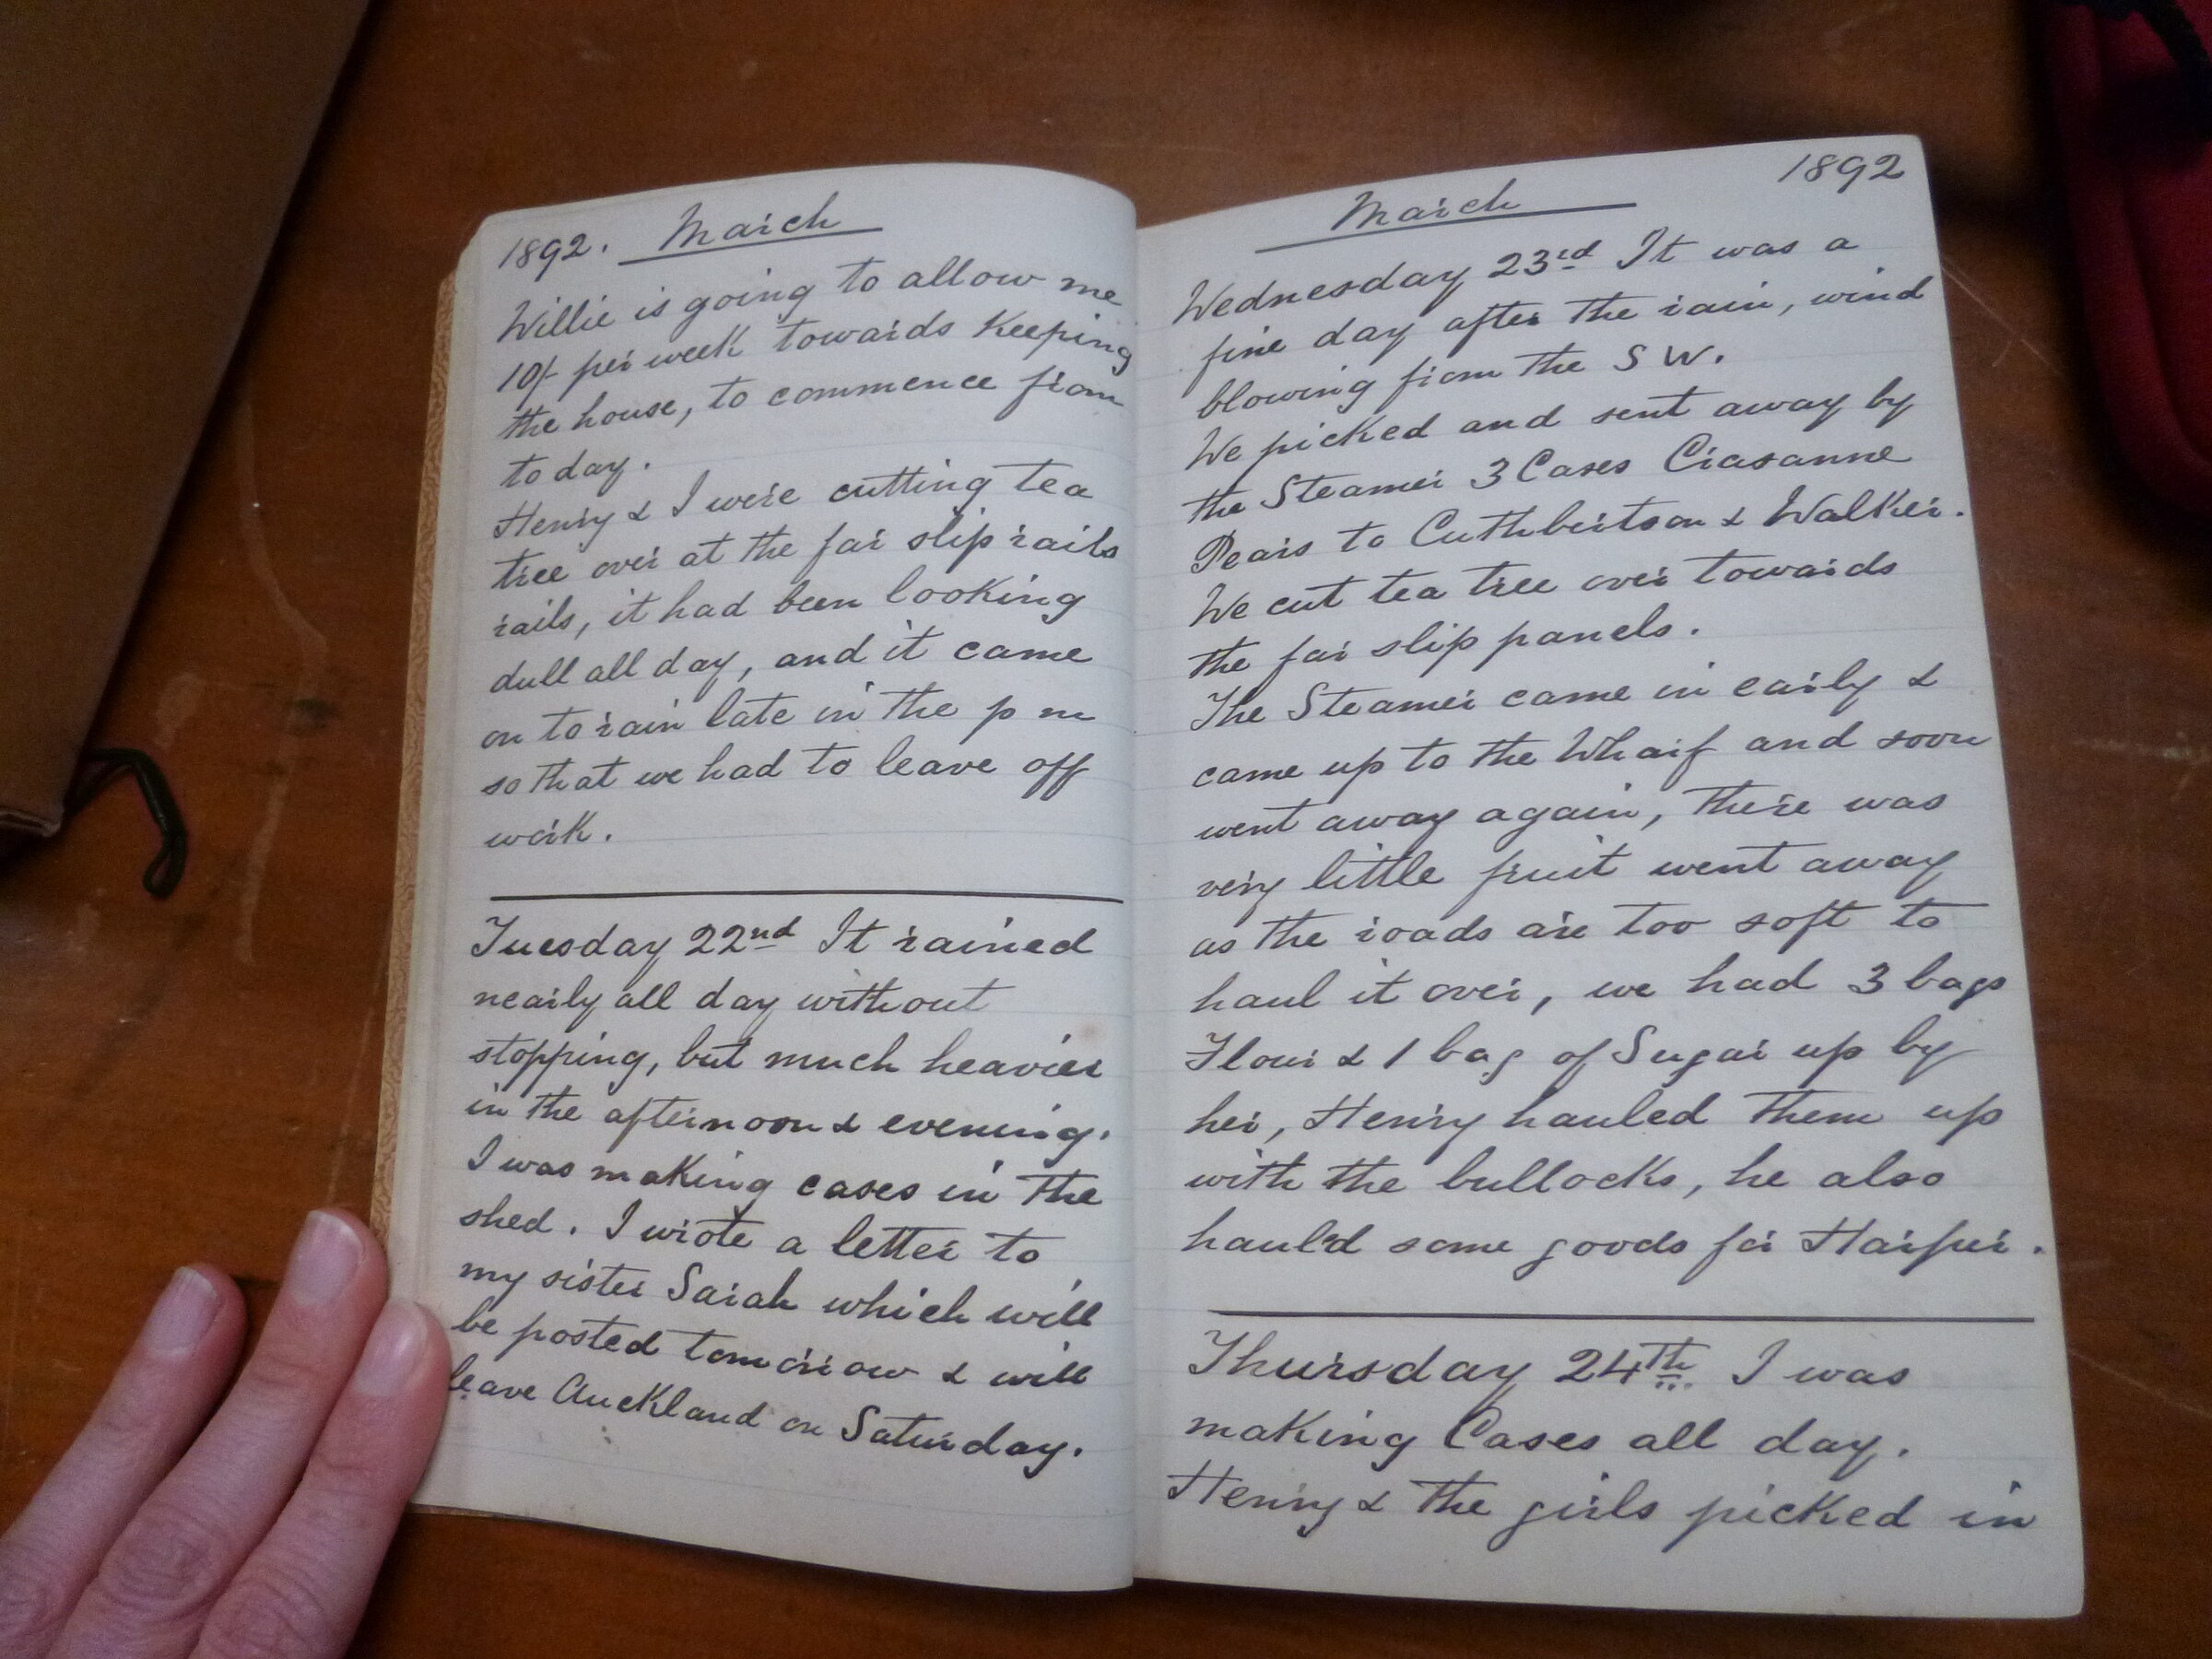 1892. March
Willie is going to allow me
10/- per week towards Keeping
the house, to commence from
to day.
Henry & I were cutting tea
tree over at the far slip rails
rails, it had been looking
dull all day, and it came
on to rain late in the p m
so that we had to leave off
work.
Tuesday 22nd It rained
nearly all day without
stopping, but much heavier
in the afternoon & evening.
I was making cases in the
shed. I wrote a letter to
my sister Sarah which will
be posted tomorrow & will
leave Auckland on Saturday.
1892
March
Wednesday 23rd It was a
fine day after the rain, wind
blowing from the S W.
We picked and sent away by
the Steamer 3 Cases Crasanne
Pears to Cuthbertson & Walker.
We cut tea tree over towards
the far slip panels.
The Steamer came in early &
came up to the Wharf and soon
went away again, there was
very little fruit went away
as the roads are too soft to
haul it over, we had 3 bags
Flour & 1 bag of Sugar up by
her, Henry hauled them up
with the bullocks, he also
haul'd some goods for Harper.
Thursday 24th I was
making Cases all day.
Henry & the girls picked in